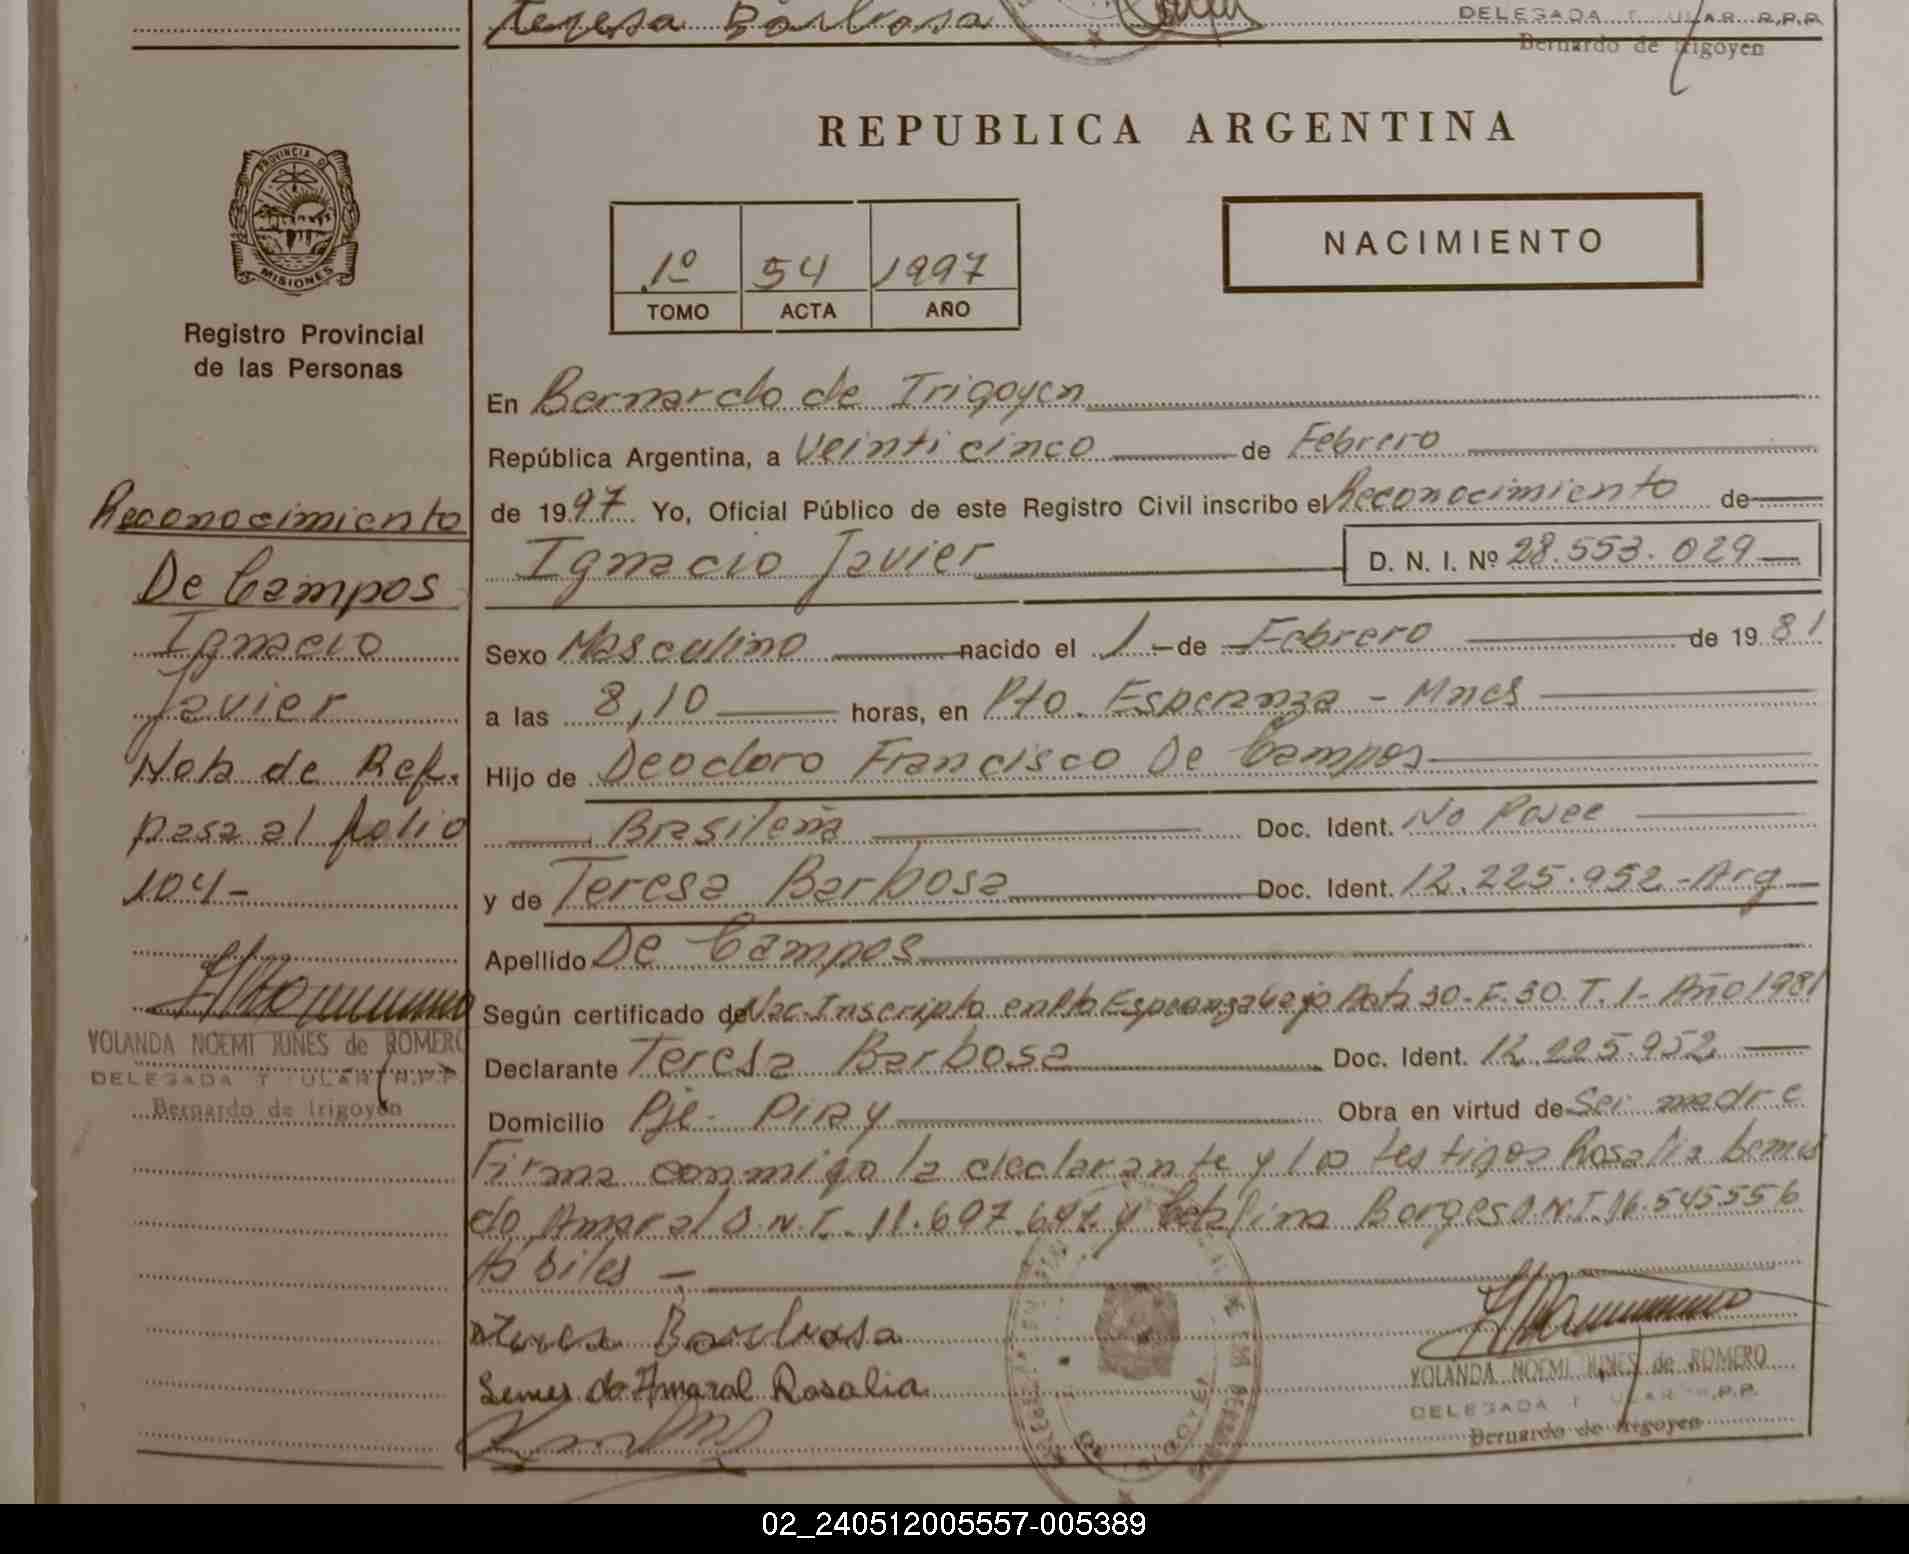 Teresa Barbosa
DELEGADA T ULAR R.P.P.
Bernardo de Irigoyen
REPUBLICA ARGENTINA
PROVINCIA DE
MISIONES
Registro Provincial
de las Personas
1º 54 1997
TOMO ACTA AÑO
NACIMIENTO
Reconocimiento
De Campos
Ignacio
Javier
Nota de Ref.
pasa al folio
104-
YOLANDA NOEMI JUNES de ROMERO
DELEGADA T ULAR R.P.P.
Bernardo de Irigoyen
En Bernardo de Irigoyen
República Argentina, a Veinticinco de Febrero
de 1997 Yo, Oficial Público de este Registro Civil inscribo el Reconocimiento de
Ignacio Javier D. N. I. Nº 28.553.029
Sexo Masculino nacido el 1 de Febrero de 1981
a las 8,10 horas, en Pto. Esperanza - Mnes
Hijo de Deodoro Francisco De Campos
Brasileña Doc. Ident. No Posee
y de Teresa Barbosa Doc. Ident. 12.225.952-Arg
Apellido De Campos
Según certificado de Nac. Inscripto en Pto Esperanza bajo Acta 30-F.30.T.1- Año 1981
Declarante Teresa Barbosa Doc. Ident. 12.225.952
Domicilio Pje- Piray Obra en virtud de Ser madre
Firma conmigo la declarante y los testigos Rosalia Lemes
do Amaral D.N.I. 11.697.697 y Catalina Borges D.N.I. 16.545556
Habiles -
Teresa Barbosa
Lemes do Amaral Rosalia
YOLANDA NOEMI JUNES de ROMERO
DELEGADA T ULAR R.P.P.
Bernardo de Irigoyen
02_240512005557-005389